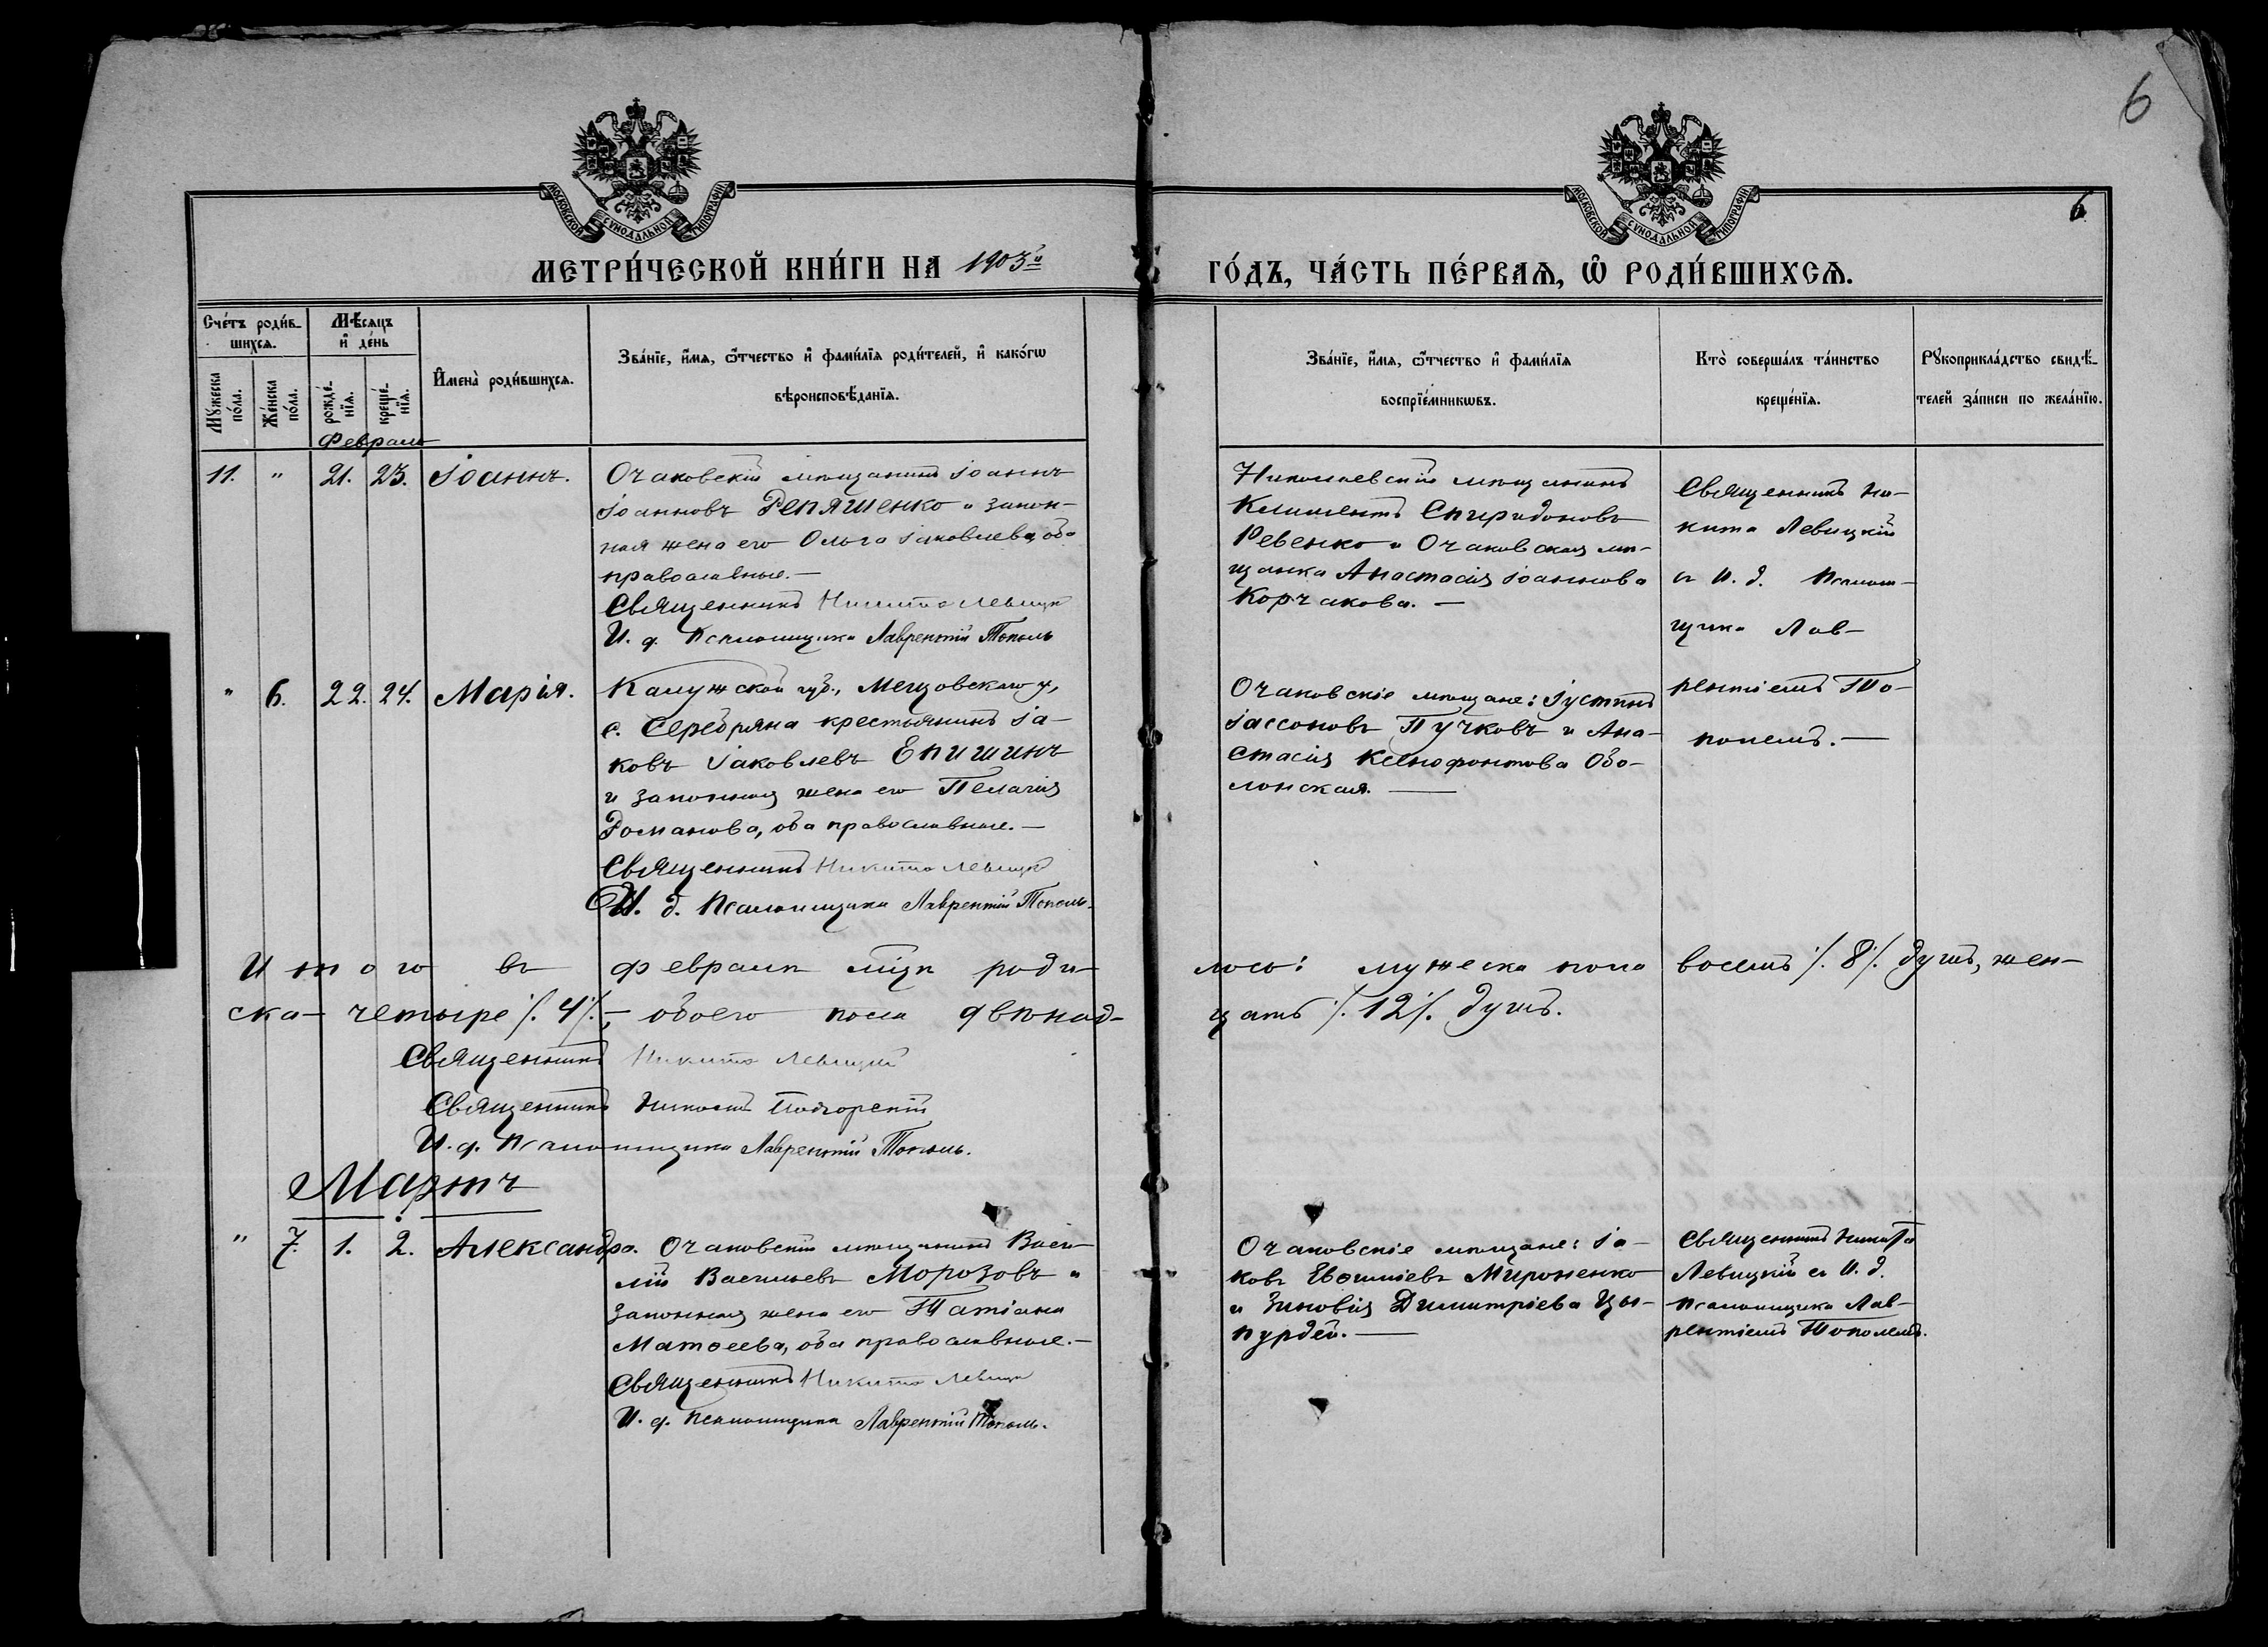 6
6
МОСКОВСКОЙ СѴНОДАЛЬНОЙ ТИПОГРАФІИ
МОСКОВСКОЙ СѴНОДАЛЬНОЙ ТИПОГРАФІИ
МЕТРИ́ЧЕСКОЙ КНИ́ГИ НА 1903й
ГО́ДЪ, ЧА́СТЬ ПЕ́РВАѦ, Ѽ РОДИ́ВШИХСѦ.
Сче́тъ роди́в-
шихсѧ.
Мѣ́сѧцъ
и҆ де́нь
Мꙋ́жеска
по́ла.
Же́нска
по́ла.
рожде́-
нїѧ.
креще́-
нїѧ.
И҆мена̀ роди́вшихсѧ.
Зва́нїе, и҆́мѧ, ѻ҆́тчество и҆ фами́лїѧ роди́телей, и҆ како́гѡ
вѣроисповѣ́данїѧ.
Зва́нїе, и҆́мѧ, ѻ҆́тчество и҆ фами́лїѧ
воспрїе́мникѡвъ.
Кто̀ соверша́лъ та́инство
креще́нїѧ.
Рꙋкоприкла́дство свидѣ́-
телей за́писи по жела́нїю.
Февраль
11. " 21. 23. Іоаннъ.
Очаковскій мѣщанинъ Іоаннъ
Іоанновъ Репяшенко и закон-
ная жена его Ольга Іаковлева, оба
православные.—
Священникъ Никита Левицкій
И. д. Псаломщика Лаврентій Тополь
Николаевскій мѣщанинъ
Климентъ Спиридоновъ
Ревенко и Очаковская мѣ-
щанка Анастасія Іоаннова
Корчакова.—
Священникъ Ни-
кита Левицкій
съ И. д. Псалом-
щика Лав-
рентіемъ То-
полемъ.—
" 6. 22. 24. Марія.
Калужской губ., Мещовскаго у,
с. Серебряна крестьянинъ Іа-
ковъ Іаковлевъ Епишинъ
и законная жена его Пелагія
Романова, оба православные.—
Священникъ Никита Левицкій
И. д. Псаломщика Лаврентій Тополь.
Очаковскіе мѣщане: Іустинъ
Іассоновъ Пучковъ и Ана-
стасія Ксенофонтова Обо-
лонская.—
Итого въ февралѣ м̃цѣ роди-
лось: мужеска пола восемь ∕. 8 ∕. душъ, жен-
ска — четыре ∕. 4 ∕. —, обоего пола двѣнад-
цать ∕. 12 ∕. душъ.
Священникъ Никита Левицкій
Священникъ Николай Подгорскій
И. д. Псаломщика Лаврентій Тополь.
Мартъ
" 7. 1. 2. Александра.
Очаковскій мѣщанинъ Васи-
лій Васильевъ Морозовъ и
законная жена его Татіана
Матѳеева, оба православные.—
Священникъ Никита Левицкій
И. д. Псаломщика Лаврентій Тополь.
Очаковскіе мѣщане: Іа-
ковъ Евѳиміевъ Мироненко
и Зиновія Димитріева Цы-
пурдей.—
Священникъ Никита
Левицкій съ И. д.
Псаломщика Лав-
рентіемъ Тополемъ.